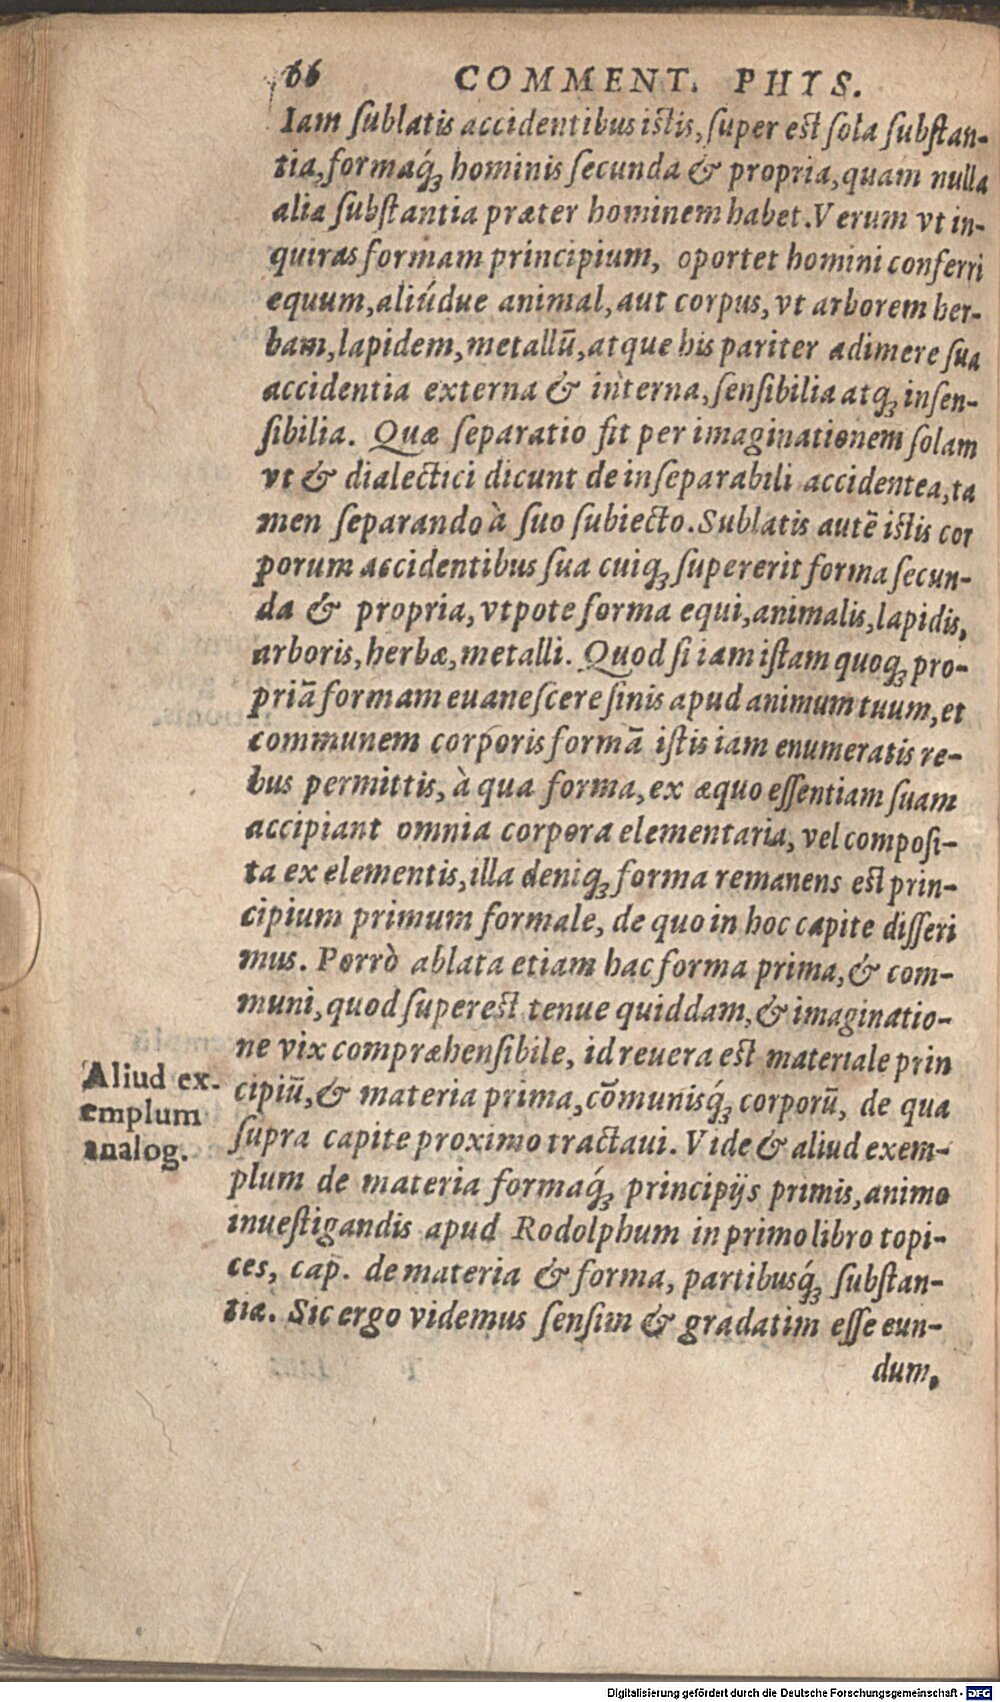 66 COMMENT. PHYS.
Iam ſublatis accidentibus iſtis, ſuper eſt ſola ſubſtan-
tia, formaq́ꝫ hominis ſecunda & propria, quam nulla
alia ſubſtantia præter hominem habet. Verum vt in-
quiras formam principium, oportet homini conferri
equum, aliúdue animal, aut corpus, vt arborem her-
bam, lapidem, metallū, atque his pariter adimere ſua
accidentia externa & interna, ſenſibilia atqꝫ inſen-
ſibilia. Quæ ſeparatio fit per imaginationem ſolam
vt & dialectici dicunt de inſeparabili accidente a, ta
men ſeparando à ſuo ſubiecto. Sublatis autē iſtis cor
porum accidentibus ſua cuiqꝫ ſupererit forma ſecun-
da & propria, vtpote forma equi, animalis, lapidis,
arboris, herbæ, metalli. Quod ſi iam iſtam quoqꝫ pro-
priā formam euaneſcere ſinis apud animum tuum, et
communem corporis formā iſtis iam enumeratis re-
bus permittis, à qua forma, ex æquo eſſentiam ſuam
accipiant omnia corpora elementaria, vel compoſi-
ta ex elementis, illa deniqꝫ forma remanens eſt prin-
cipium primum formale, de quo in hoc capite diſſeri
mus. Porrò ablata etiam hac forma prima, & com-
muni, quod ſupereſt tenue quiddam, & imaginatio-
ne vix compræhenſibile, id reuera eſt materiale prin
cipiū, & materia prima, cōmunisq́ꝫ corporū, de qua
ſupra capite proximo tractaui. Vide & aliud exem-
plum de materia formaq́ꝫ principijs primis, animo
inueſtigandis apud Rodolphum in primo libro topi-
ces, cap. de materia & forma, partibusq́ꝫ ſubſtan-
tiæ. Sic ergo videmus ſenſim & gradatim eſſe eun-
dum,
Aliud ex-
emplum
analog.
Digitalisierung gefördert durch die Deutsche Forschungsgemeinschaft - DFG